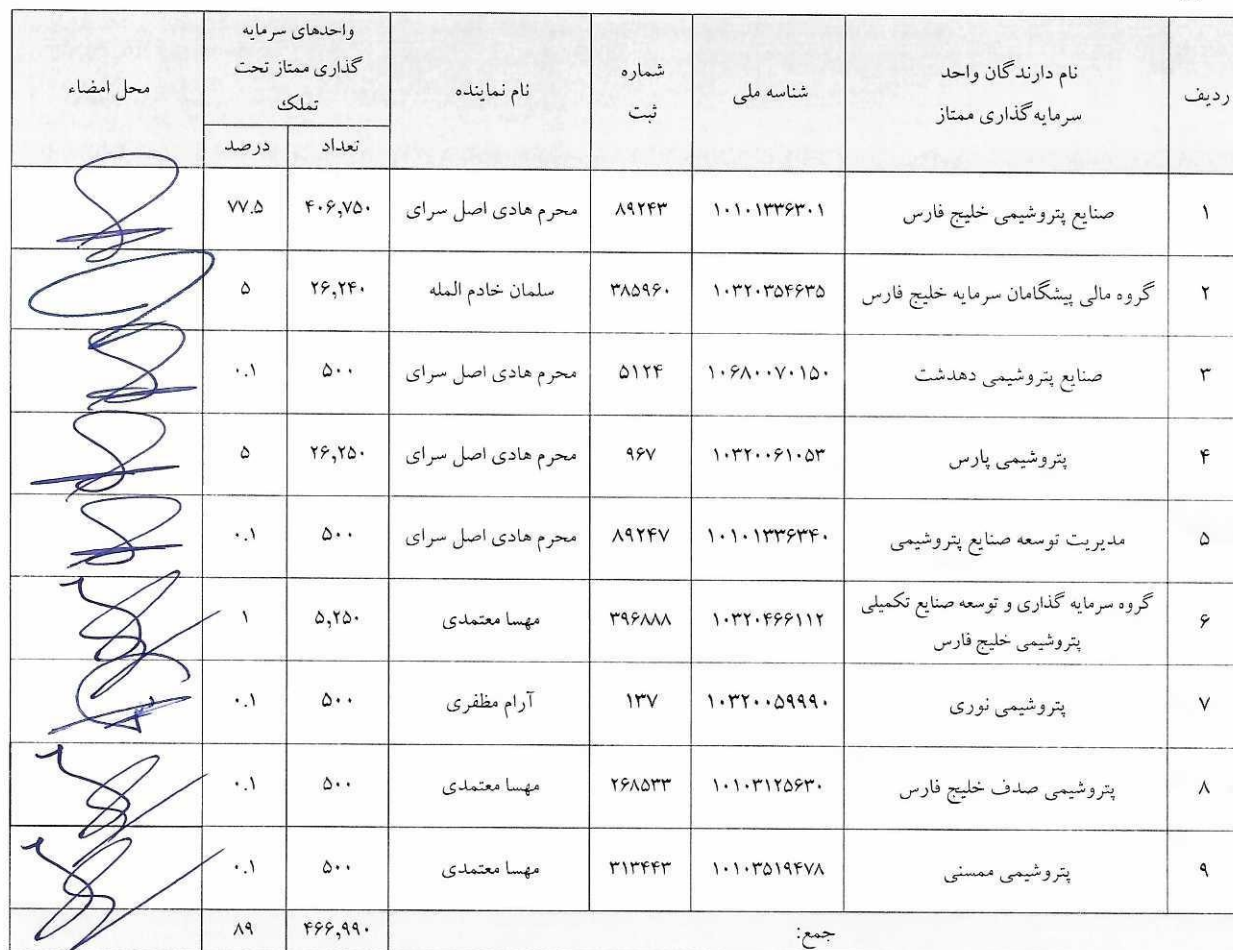 ردیف
نام دارندگان واحد
سرمایه گذاری ممتاز
شناسه ملی
شماره
ثبت
نام نماینده
واحدهای سرمایه
گذاری ممتاز تحت
تملک
تعداد
درصد
محل امضاء
۱ صنایع پتروشیمی خلیج فارس ۱۰۱۰۱۳۳۶۳۰۱ ۸۹۲۴۳ محرم هادی اصل سرای ۴۰۶,۷۵۰ ۷۷.۵
۲ گروه مالی پیشگامان سرمایه خلیج فارس ۱۰۳۲۰۳۵۴۶۳۵ ۳۸۵۹۶۰ سلمان خادم المله ۲۶,۲۴۰ ۵
۳ صنایع پتروشیمی دهدشت ۱۰۶۸۰۰۷۰۱۵۰ ۵۱۲۴ محرم هادی اصل سرای ۵۰۰ ۰.۱
۴ پتروشیمی پارس ۱۰۳۲۰۰۶۱۰۵۳ ۹۶۷ محرم هادی اصل سرای ۲۶,۲۵۰ ۵
۵ مدیریت توسعه صنایع پتروشیمی ۱۰۱۰۱۳۳۶۳۴۰ ۸۹۲۴۷ محرم هادی اصل سرای ۵۰۰ ۰.۱
۶ گروه سرمایه گذاری و توسعه صنایع تکمیلی
پتروشیمی خلیج فارس ۱۰۳۲۰۴۶۶۱۱۲ ۳۹۶۸۸۸ مهسا معتمدی ۵,۲۵۰ ۱
۷ پتروشیمی نوری ۱۰۳۲۰۰۵۹۹۹۰ ۱۳۷ آرام مظفری ۵۰۰ ۰.۱
۸ پتروشیمی صدف خلیج فارس ۱۰۱۰۳۱۲۵۶۳۰ ۲۶۸۵۳۳ مهسا معتمدی ۵۰۰ ۰.۱
۹ پتروشیمی ممسنی ۱۰۱۰۳۵۱۹۴۷۸ ۳۱۳۴۴۳ مهسا معتمدی ۵۰۰ ۰.۱
جمع: ۴۶۶,۹۹۰ ۸۹